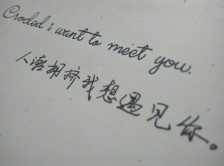 Croded i want to meet you.
人海拥挤我想遇见你。